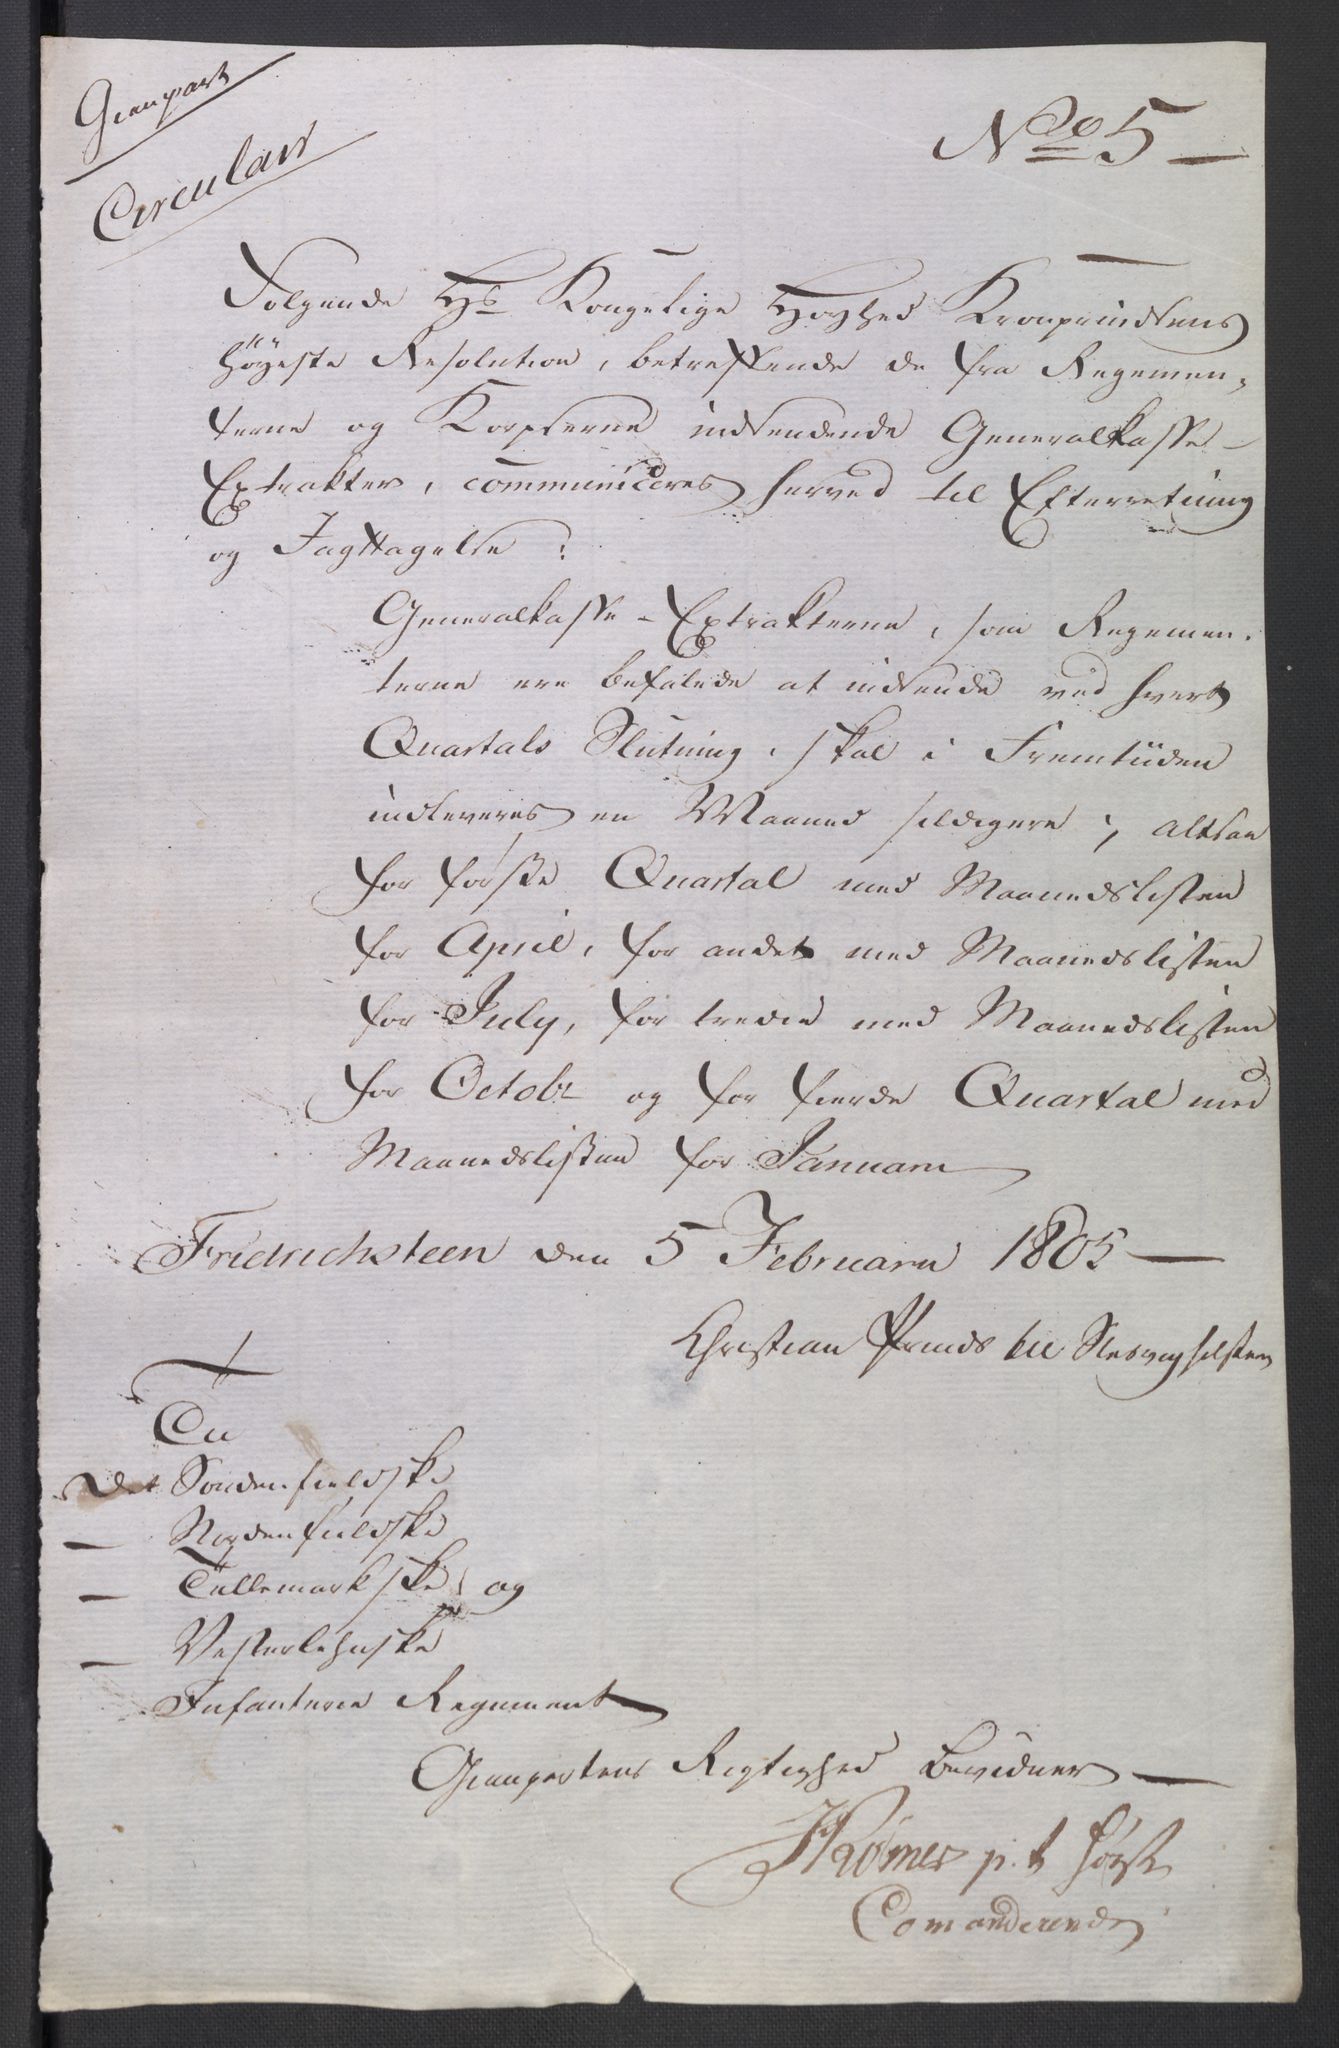 Gienpart
Circulair
No 5 —
Følgende Hs Kongelige Høyhed Kronprindsens
Høyeste Resolution, betreffende de fra Regemen„
terne og Korpserne indsendende Generalkasse-
Extrakter, communiceres herved til Efterretning
og Jagttagelse:
Generalkasse-Extrakterne, som Regemen„
terne ere befalede at indsende ved hvert
Quartals Slutning, skal i Fremtiiden
indleveres en Maaned sildigere; altsaa
for første Quartal med Maanedslisten
for April, for andet med Maanedslisten
for July, for tredie med Maanedslisten
for Octobr og for fierde Quartal med
Maanedslisten for Januarii
Fridrichsteen den 5 Februarii 1805 —
Christian Prinds til Slesvigholsten
Til
Det Søndenfieldske
— Nordenfieldske
— Tellemarkske, og
— Vesterlehnske
Infanterie Regiment
Gienpartens Rigtighed bevidner —
p. t. Høyst
Comanderende